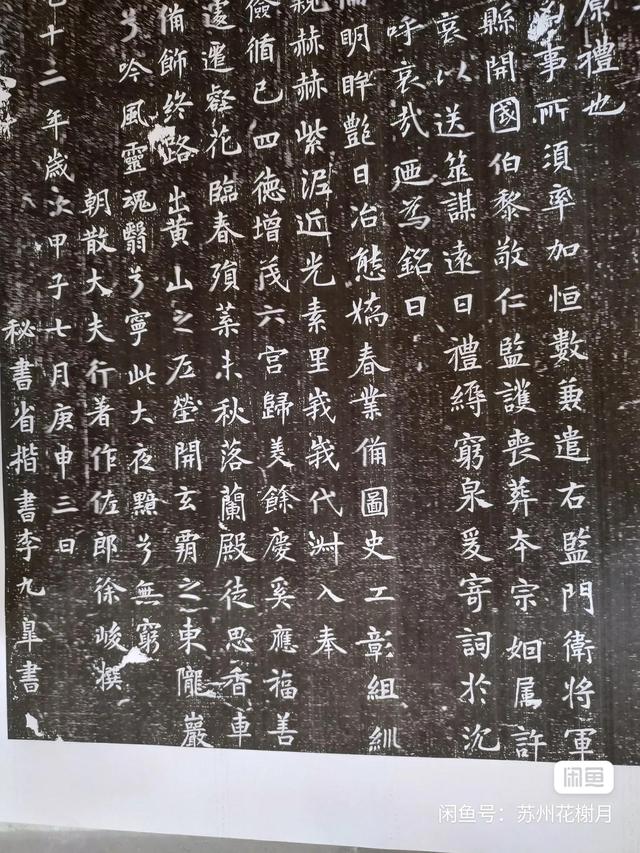 原禮也
事所須率加恒數兼遣右監門衛將軍
縣開國伯黎敬仁監護喪葬本宗姻属許
哀以送筮謀遠日禮縟窮泉爰寄詞於沉
呼哀哉廼為銘曰
明眸艷日冶態嬌春業備圖史工彰組紃
赫赫紫泥近光素里峩峩代入奉
儉循已四德增茂六宮歸美餘慶奚應福善
遽遷花臨春殞蘂未秋落蘭殿徒思香車
備飾終路出黄山之左塋開玄霸之東隴巖
兮吟風靈魂翳兮寧此大夜黯兮無窮
朝散大夫行著作佐郎徐峻撰
十二年歲次甲子七月庚申三日
秘書省揩書李九臯書
闲鱼
闲鱼号：苏州花榭月